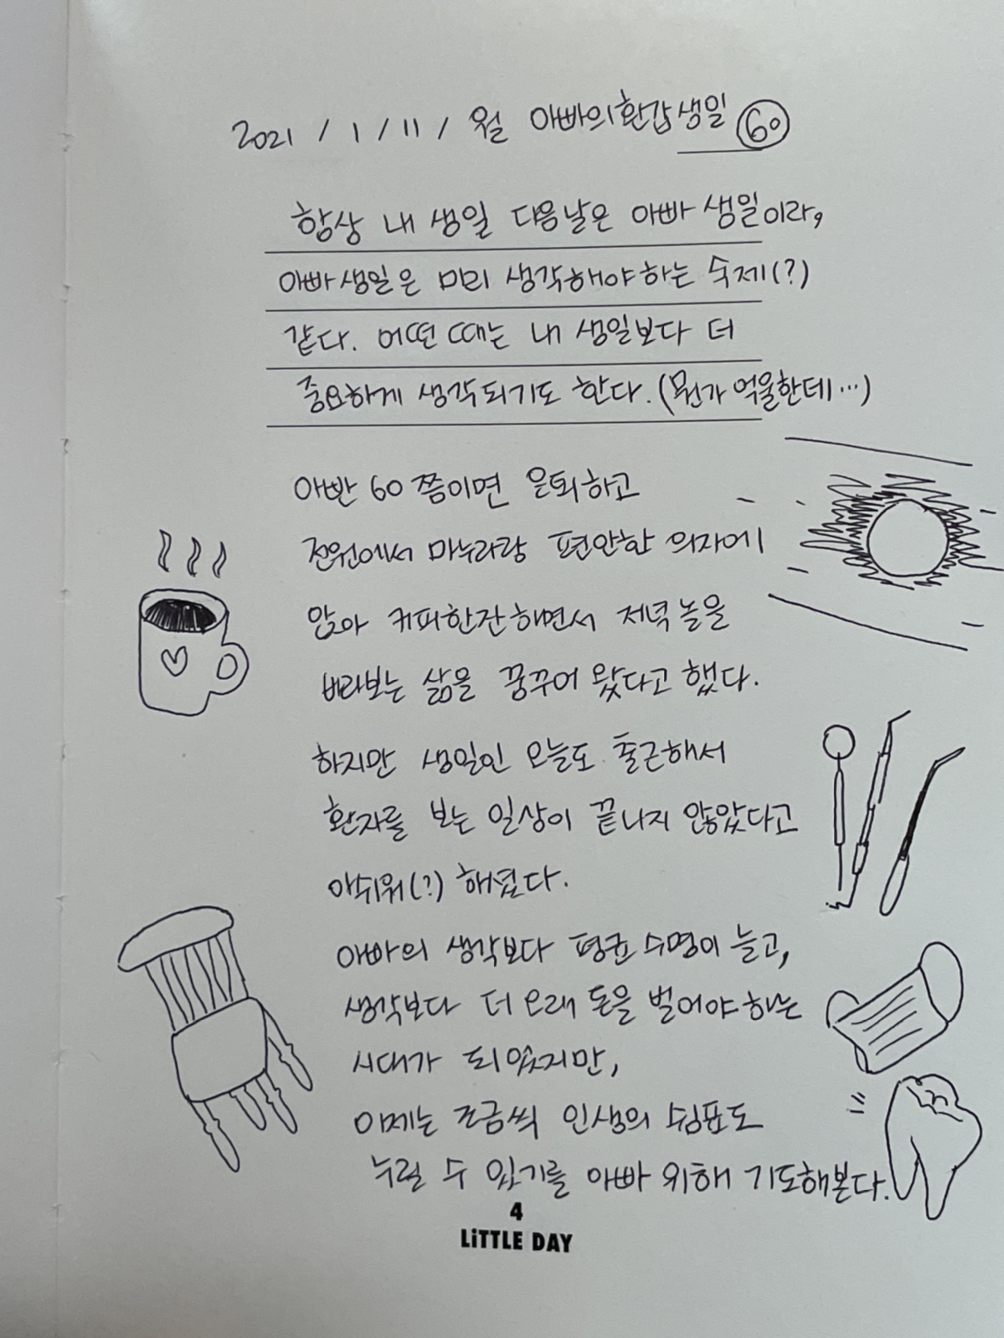 2021 / 1 / 11 / 월 아빠의 환갑 생일 60
항상 내 생일 다음날은 아빠 생일이라,
아빠 생일은 미리 생각해야하는 숙제(?)
같다. 어떤 때는 내 생일보다 더
중요하게 생각되기도 한다. (뭔가 억울한데…)
아빤 60쯤이면 은퇴하고
전원에서 마누라랑 편안한 의자에
앉아 커피한잔하면서 저녁 놀을
바라보는 삶을 꿈꾸어 왔다고 했다.
하지만 생일인 오늘도 출근해서
환자를 보는 일상이 끝나지 않았다고
아쉬워(?) 하셨다.
아빠의 생각보다 평균 수명이 늘고,
생각보다 더 오래 돈을 벌어야 하는
시대가 되었지만,
이제는 조금씩 인생의 쉼표도
누릴 수 있기를 아빠 위해 기도해본다.
4
LiTTLE DAY